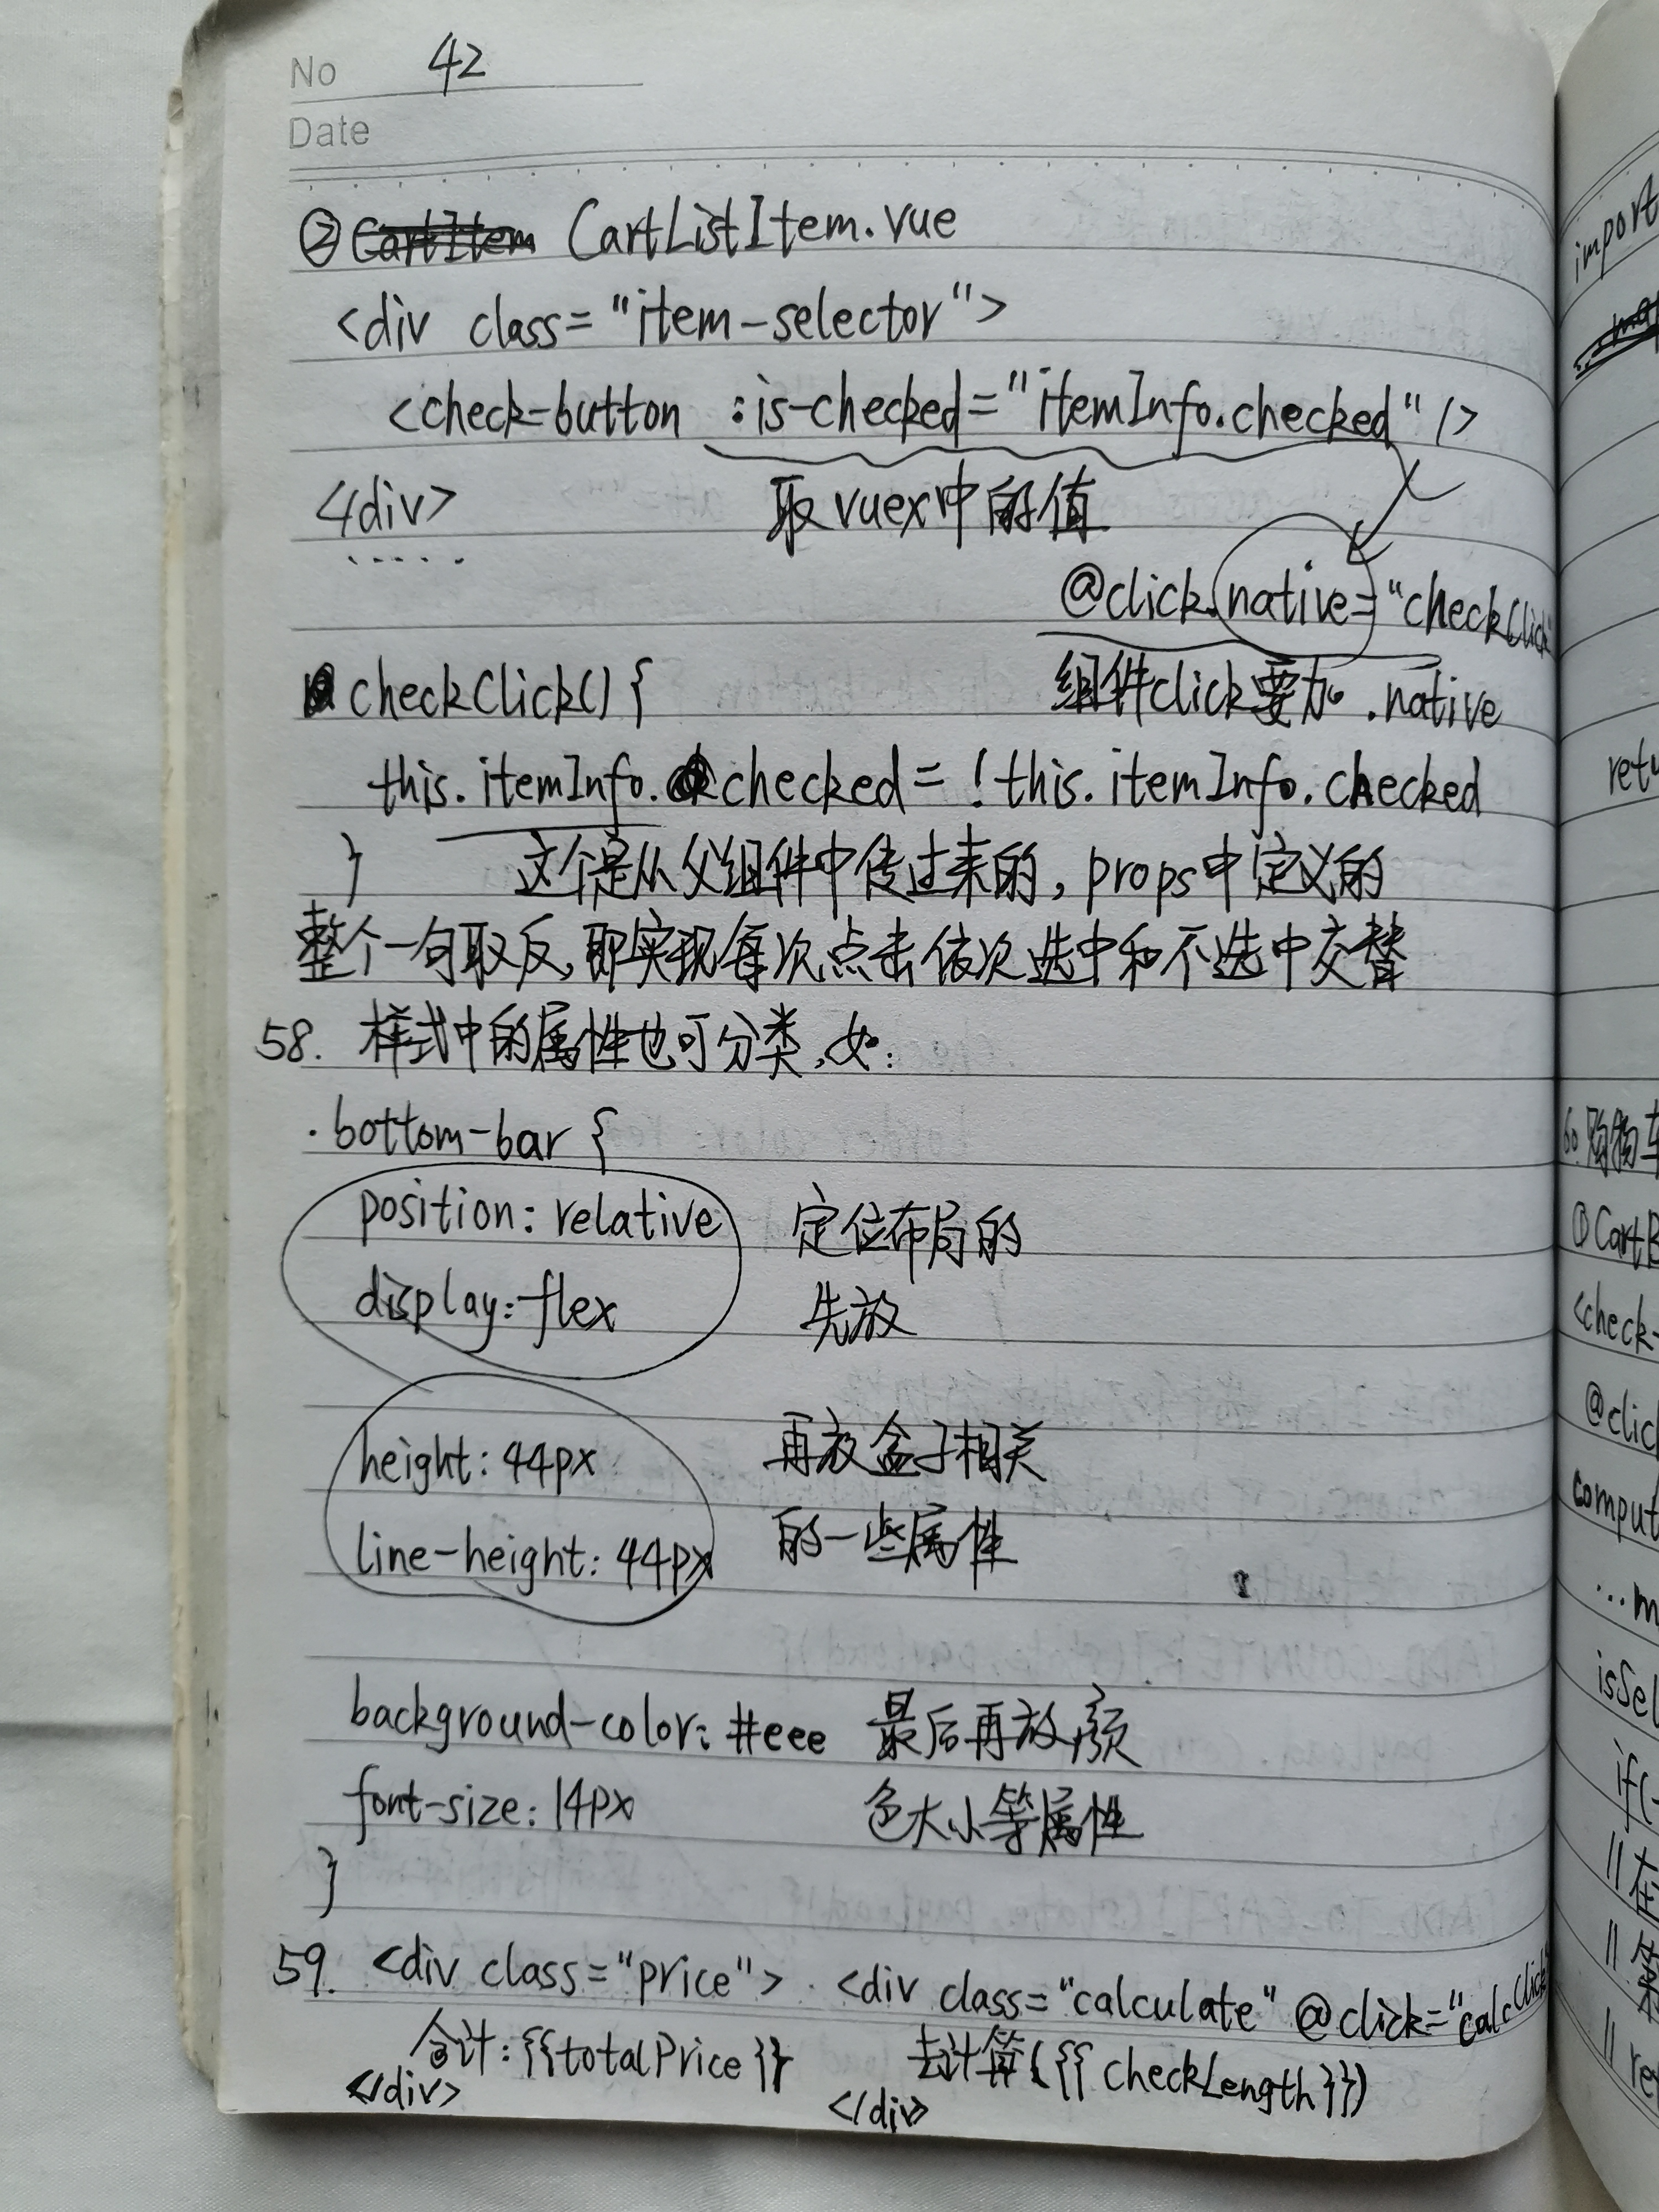 No 42
Date
② CartListItem.vue
<div class="item-selector">
<check-button :is-checked="itemInfo.checked" />
</div> 取vuex中的值
.....
@click.native="checkClick"
checkClick() { 组件click要加.native
this.itemInfo.checked = !this.itemInfo.checked
} 这个是从父组件中传过来的,props中定义的
整个一句取反,即实现每次点击依次选中和不选中交替
58. 样式中的属性也可分类,如:
.bottom-bar {
position: relative 定位布局的
display: flex 先放
height: 44px 再放盒子相关
line-height: 44px 的一些属性
background-color: #eee 最后再放颜
font-size: 14px 色大小等属性
}
59. <div class="price"> <div class="calculate" @click="calcClick
合计:{{totalPrice}} 去计算({{checkLength}})
</div> </div>
import
retu
60.购物车
①CartB
<check-
@clic
comput
...m
isSel
if(
//在
//
// re